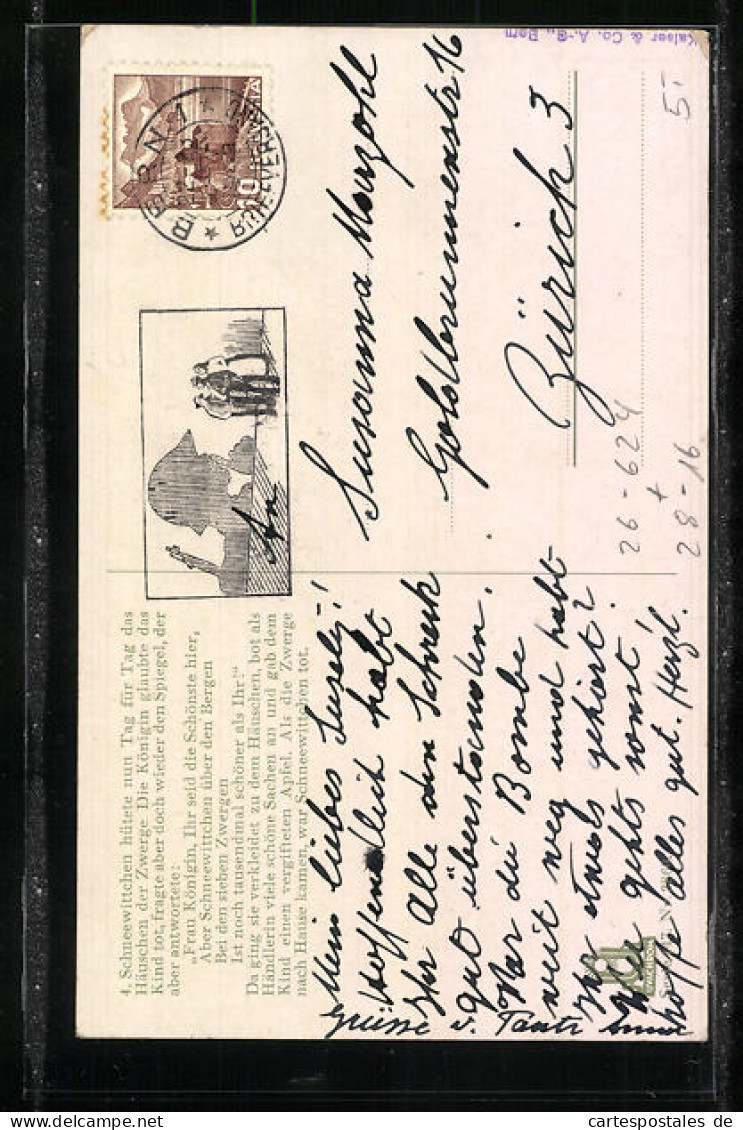 4. Schneewittchen hütete nun Tag für Tag das
Häuschen der Zwerge. Die Königin glaubte das
Kind tot, fragte aber doch wieder den Spiegel, der
aber antwortete:
„Frau Königin, Ihr seid die Schönste hier,
Aber Schneewittchen über den Bergen
Bei den sieben Zwergen
Ist noch tausendmal schöner als Ihr!“
Da ging sie verkleidet zu dem Häuschen, bot als
Händlerin viele schöne Sachen an und gab dem
Kind einen vergifteten Apfel. Als die Zwerge
nach Hause kamen, war Schneewittchen tot.
Mein liebes Suseli!
Hoffendlich habt
Ihr alle den Schreck
gut überstanden.
War die Bombe
weit weg und habt
Ihr etwas gehört?
Wie gehts sonst!
hoffe alles gut. Herzl.
Grüsse v. Tanti
An
Susanna Marzohl
Goldbrunnenstr 16
Zürich 3
BERN 1
BRIEFVERSAND
10
Kaiser & Co. A.-G., Bern
5.-
26-624
+
28-16
cartespostales.de